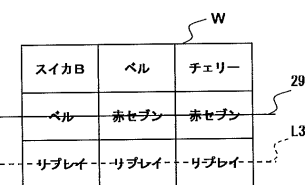 W
スイカB ベル チェリー
ベル 赤セブン 赤セブン 29
リプレイ リプレイ リプレイ L3